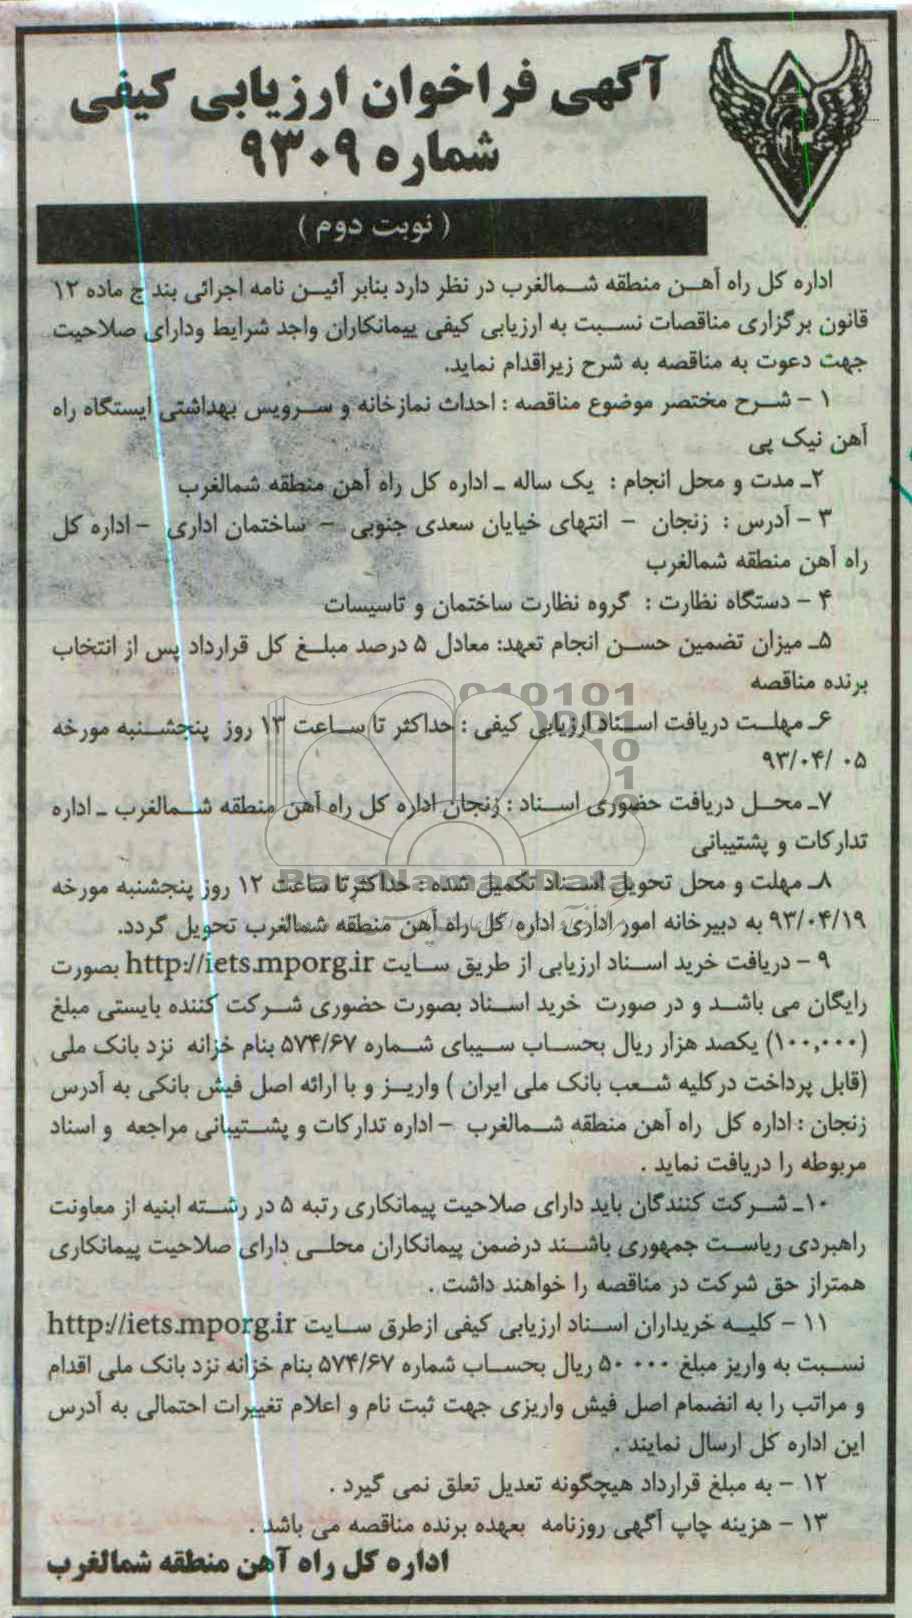 آگهی فراخوان ارزیابی کیفی
شماره ۹۳۰۹
( نوبت دوم )
اداره کل راه آهـن منطقه شـمالغرب در نظر دارد بنابر آئیـن نامه اجرائی بند ج ماده ۱۲
قانون برگزاری مناقصات نسـبت به ارزیابی کیفی پیمانکاران واجد شرایط ودارای صلاحیت
جهت دعوت به مناقصه به شرح زیراقدام نماید.
۱ - شـرح مختصر موضوع مناقصه : احداث نمازخانه و سـرویس بهداشتی ایستگاه راه
آهن نیک پی
۲ـ مدت و محل انجام : یک ساله ـ اداره کل راه آهن منطقه شمالغرب
۳ - آدرس : زنجان - انتهای خیابان سعدی جنوبی - ساختمان اداری - اداره کل
راه آهن منطقه شمالغرب
۴ - دستگاه نظارت : گروه نظارت ساختمان و تاسیسات
۵ـ میزان تضمین حسـن انجام تعهد: معادل ۵ درصد مبلـغ کل قرارداد پس از انتخاب
برنده مناقصه
۶ـ مهلـت دریافت اسـناد ارزیابی کیفی : حداکثر تا سـاعت ۱۳ روز پنجشـنبه مورخه
۹۳/۰۴/ ۰۵
۷ـ محـل دریافت حضوری اسـناد : زنجان اداره کل راه آهن منطقه شـمالغرب ـ اداره
تدارکات و پشتیبانی
۸ـ مهلت و محل تحویل اسـناد تکمیل شده : حداکثرتا ساعت ۱۲ روز پنجشنبه مورخه
۹۳/۰۴/۱۹ به دبیرخانه امور اداری اداره کل راه آهن منطقه شمالغرب تحویل گردد.
۹ - دریافت خرید اسـناد ارزیابی از طریق سـایت http://iets.mporg.ir بصورت
رایگان می باشـد و در صورت خرید اسـناد بصورت حضوری شـرکت کننده بایستی مبلغ
(۱۰۰,۰۰۰) یکصد هزار ریال بحسـاب سـیبای شـماره ۵۷۴/۶۷ بنام خزانه نزد بانک ملی
(قابل پرداخت درکلیه شـعب بانک ملی ایران ) واریـز و با ارائه اصل فیش بانکی به آدرس
زنجان : اداره کل راه آهن منطقه شـمالغرب - اداره تدارکات و پشـتیبانی مراجعه و اسناد
مربوطه را دریافت نماید .
۱۰ـ شـرکت کنندگان باید دارای صلاحیت پیمانکاری رتبه ۵ در رشـته ابنیه از معاونت
راهبردی ریاسـت جمهوری باشـند درضمن پیمانکاران محلـی دارای صلاحیت پیمانکاری
همتراز حق شرکت در مناقصه را خواهند داشت .
۱۱ - کلیـه خریداران اسـناد ارزیابی کیفی ازطرق سـایت http://iets.mporg.ir
نسـبت به واریز مبلغ ۵۰ ۰۰۰ ریال بحسـاب شماره ۵۷۴/۶۷ بنام خزانه نزد بانک ملی اقدام
و مراتب را به انضمام اصل فیش واریزی جهت ثبت نام و اعلام تغییرات احتمالی به آدرس
این اداره کل ارسال نمایند .
۱۲ - به مبلغ قرارداد هیچگونه تعدیل تعلق نمی گیرد .
۱۳ - هزینه چاپ آگهی روزنامه بعهده برنده مناقصه می باشد .
اداره کل راه آهن منطقه شمالغرب
ParsNamadData